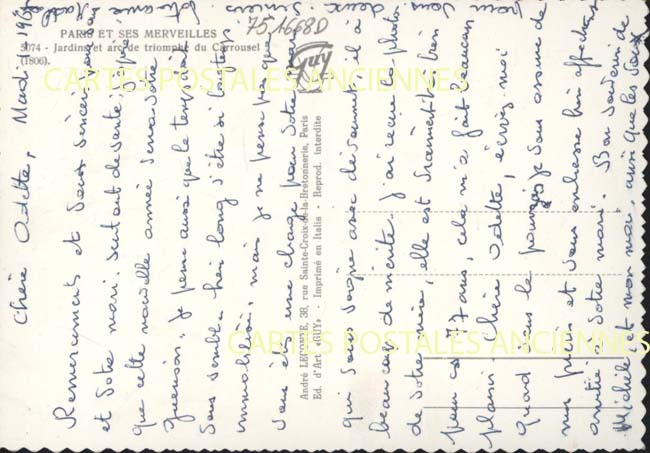 PARIS ET SES MERVEILLES
5074 - Jardins et arc de triomphe du Carrousel
(1806).
751668D
GUY
CARTES POSTALES ANCIENNES
CARTES POSTALES ANCIENNES
André LECONTE, 38, rue Sainte-Croix-de-la-Bretonnerie, Paris
Ed. d'Art «GUY» - Imprimé en Italie - Reprod. Interdite
Chère Odette, Mardi
Remerciements et voeux sincères
et votre mari. Surtout de santé,
que cette nouvelle année vous
guérison. Je pense aussi que le temps doit
vous sembler bien long d'être si longtemps
immobilisé, mais je ne pense pas que
vous êtes une charge pour votre mari
qui vous soigne avec dévouement il a
beaucoup de mérite. J'ai reçu la photo
de votre mamie, elle est vraiment bien
pour ces 87 ans, cela m'a fait beaucoup
plaisir chère Odette, écrivez moi
quand vous le pourrez, je vous assure de
nos prières et vous embrasse bien affectueusement
amitié à votre mari. Bon souvenir de
Michèle et mon mari, ainsi que les
pour vous deux. sincères